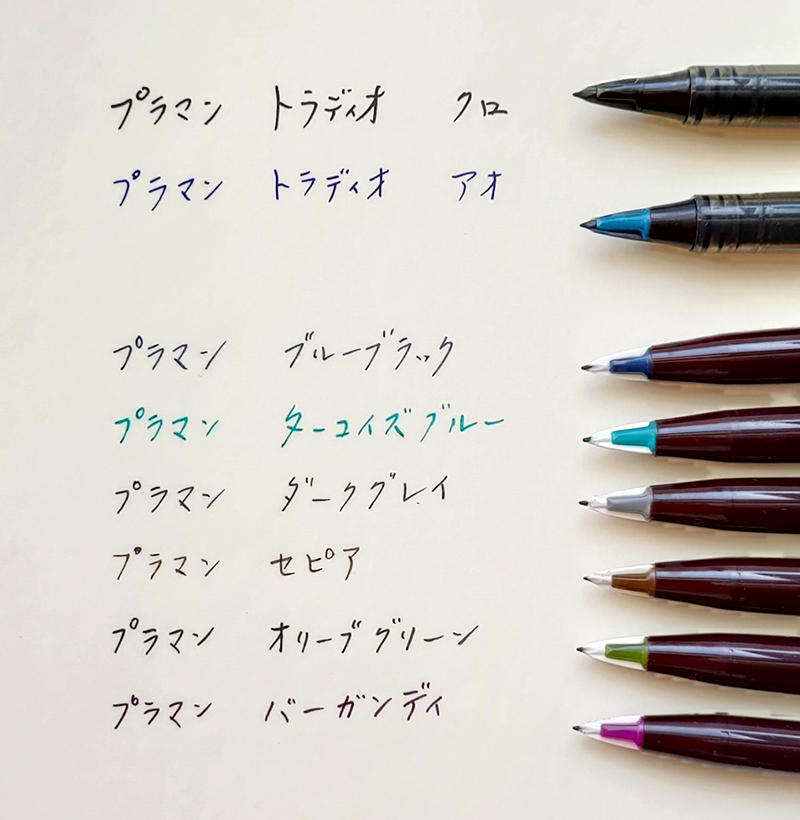 プラマン トラディオ クロ
プラマン トラディオ アオ
プラマン ブルーブラック
プラマン ターコイズブルー
プラマン ダークグレイ
プラマン セピア
プラマン オリーブグリーン
プラマン バーガンディ